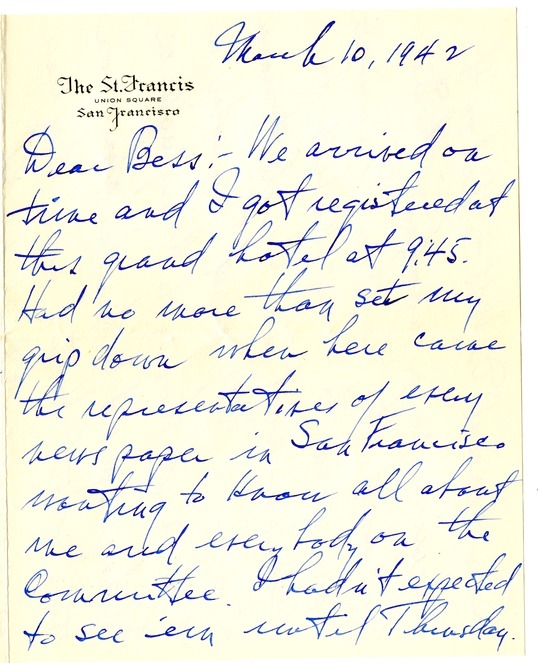 March 10, 1942
The St. Francis
UNION SQUARE
San Francisco
Dear Bess:- We arrived on
time and I got registered at
this grand hotel at 9:45.
Had no more than set my
grip down when here came
the representatives of every
news paper in San Francisco
wanting to know all about
me and everybody on the
Committee. I hadn't expected
to see 'em until Thursday.